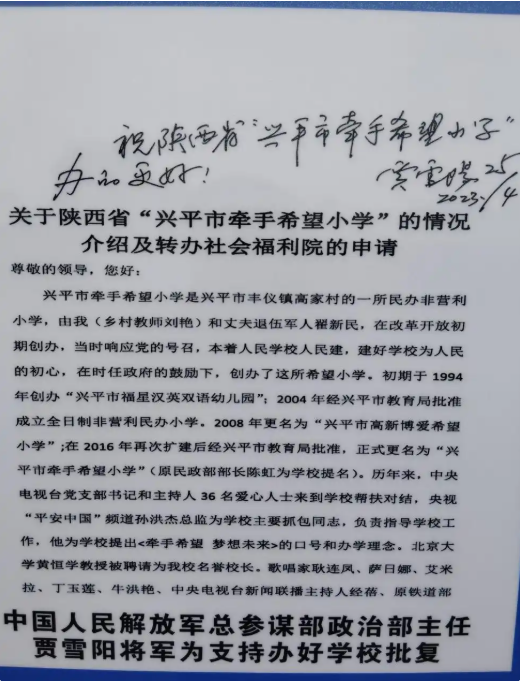 祝陕西省“兴平市牵手希望小学”
办的更好！
贾雪阳 25/4
2023.
关于陕西省“兴平市牵手希望小学”的情况
介绍及转办社会福利院的申请
尊敬的领导，您好：
兴平市牵手希望小学是兴平市丰仪镇高家村的一所民办非营利
小学，由我（乡村教师刘艳）和丈夫退伍军人翟新民，在改革开放初
期创办，当时响应党的号召，本着人民学校人民建，建好学校为人民
的初心，在时任政府的鼓励下，创办了这所希望小学。初期于 1994
年创办“兴平市福星汉英双语幼儿园”；2004 年经兴平市教育局批准
成立全日制非营利民办小学。2008 年更名为“兴平市高新博爱希望
小学”;在 2016 年再次扩建后经兴平市教育局批准，正式更名为“兴
平市牵手希望小学”（原民政部部长陈虹为学校提名）。历年来，中央
电视台党支部书记和主持人 36 名爱心人士来到学校帮扶对结，央视
“平安中国”频道孙洪杰总监为学校主要抓包同志，负责指导学校工
作，他为学校提出<牵手希望 梦想未来>的口号和办学理念。北京大
学黄恒学教授被聘请为我校名誉校长。歌唱家耿连凤、萨日娜、艾米
拉、丁玉莲、牛洪艳、中央电视台新闻联播主持人经蓓、原铁道部
中国人民解放军总参谋部政治部主任
贾雪阳将军为支持办好学校批复